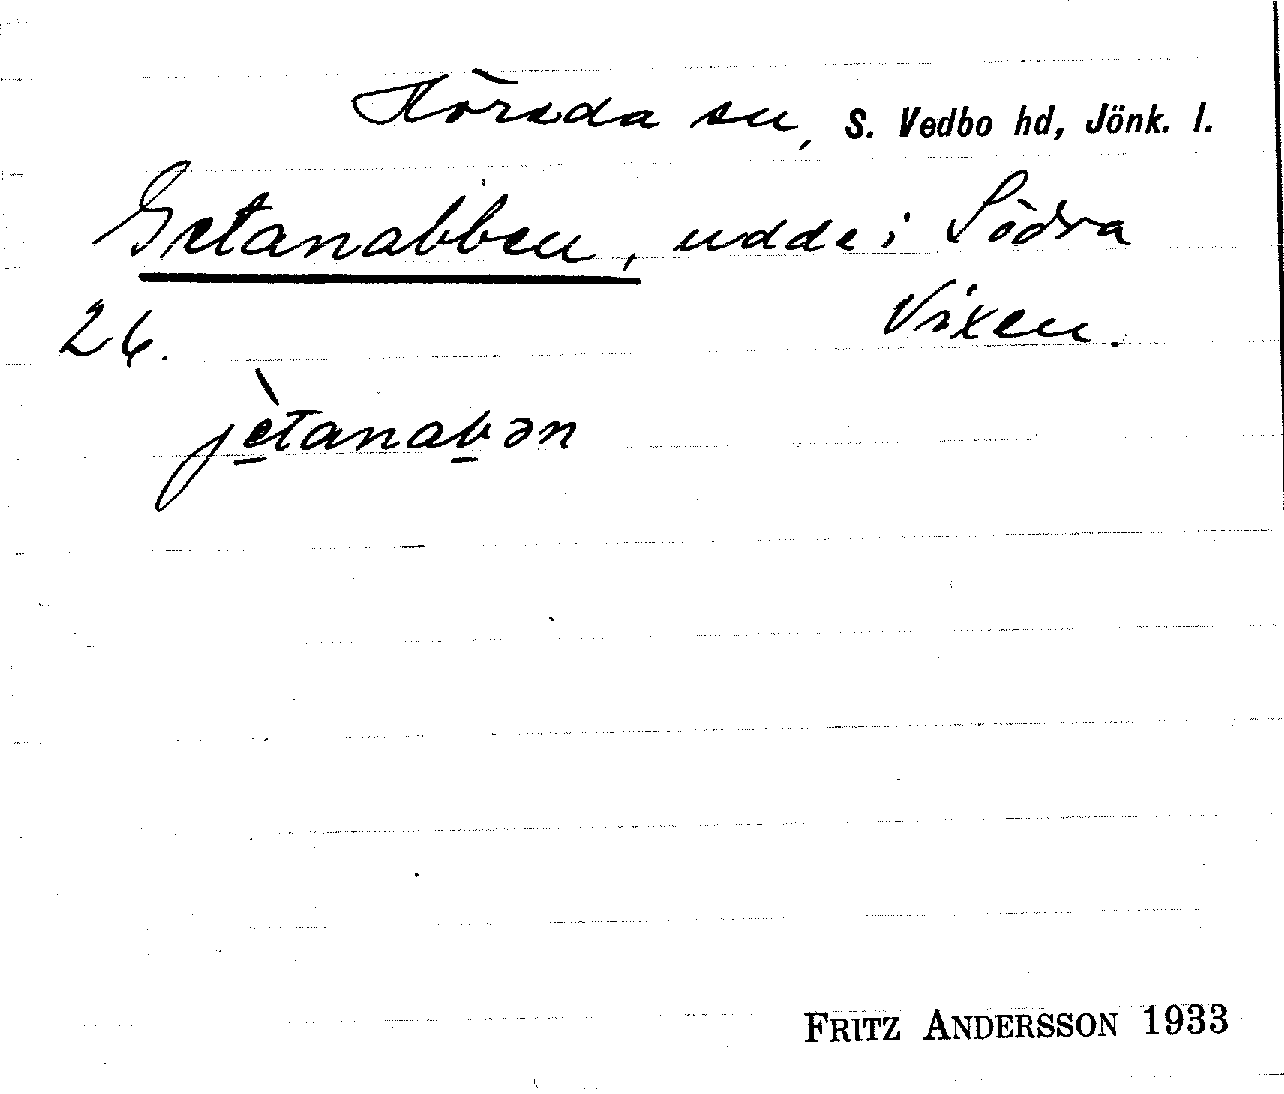 Höreda sn, S. Vedbo hd, Jönk. l.
Getanabben, udde i Södra
26. Vixen.
jètanabən
FRITZ ANDERSSON 1933